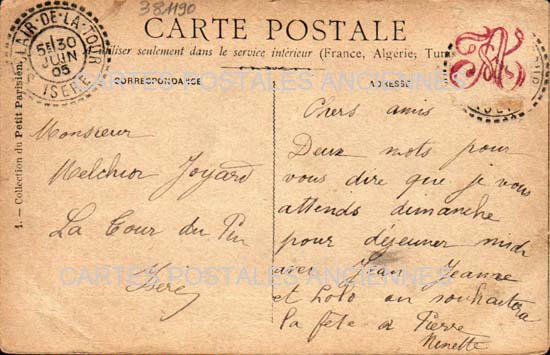 38490
CARTE POSTALE
utiliser seulement dans le service intérieur (France, Algérie, Tun
CORRESPONDANCE
ADRESSE
CLAIR-DE-LA-TOUR
5E 30
JUIN
05
ISERE
1. — Collection du Petit Parisien.
Monsieur
Melchior Joyard
La Tour du Pin
Isère
Chers amis
Deux mots pour
vous dire que je vous
attends dimanche
pour déjeuner midi
avec Jean Jeanne
et Lolo on souhaitera
la fête à Pierre
Ninette
CARTES POSTALES ANCIENNES
CARTES POSTALES ANCIENNES